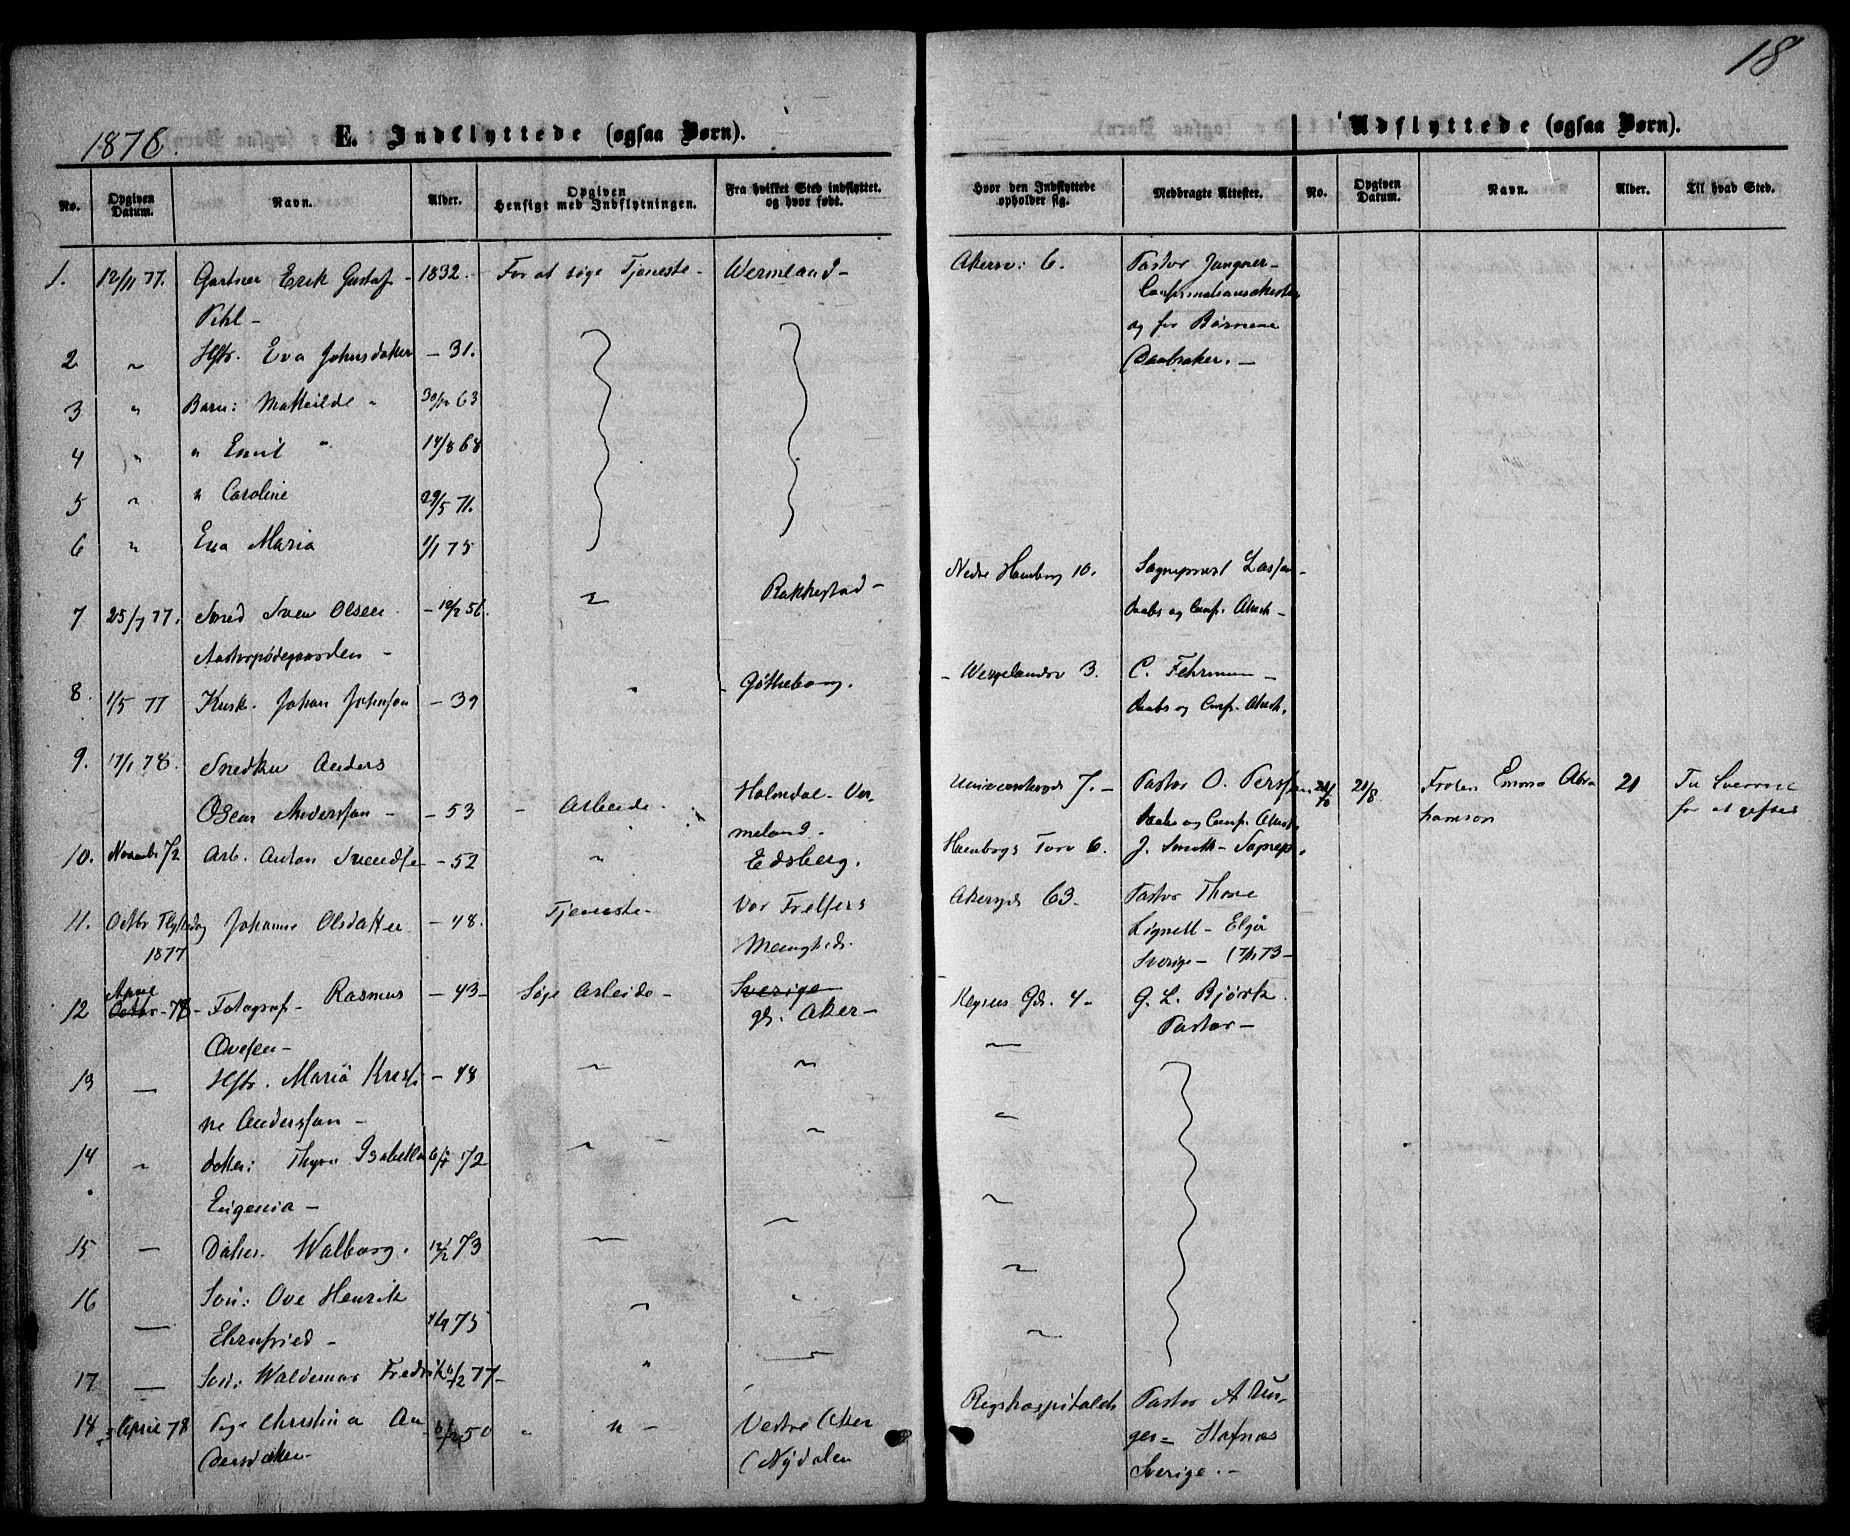 18
1878.
E. Indflyttede (ogsaa Børn).
Udflyttede (ogsaa Børn).
No.
Opgiven Datum.
Navn.
Alder.
Opgiven Hensigt med Indflytningen.
Fra hvilket Sted indflyttet. og hvor født.
Hvor den Indflyttede opholder sig.
Medbragte Attester.
No.
Opgiven Datum.
Navn.
Alder.
Til hvad Sted.
1. 12/11 77. Gartner Erik Gustaf - 1832. For at søge Tjeneste - Wermland - Akersv: 6. Pastor Jungner -
Pihl - Confirmationsattester
og for Børnene
2 " Hstr. Eva Johnsdatter - 31. Daabsatter. -
3 " Barn: Mathilde " 63
4 " " Emil " 14/8 68
5 " " Caroline 29/5 71.
6 " Eva Maria 1/1 75
7 25/7 77. Smed Sven Olsen - 56. " Rakkestad - Nedre Hambrg 10. Sognepræst Lassen -
Daabs og Conf. Attest -
8. 1/5 77 Kusk. Johan Johnson - 39 " - Gøtheborg. - Wergelandsv 3. C. Fehrman -
Daabs og Conf. Attest.
9. 17/1 78. Snedker Anders
Olsen Andersson - - 53 - Arbeide - Holmdal - Ver-
meland - Universitetsgd 7. - Pastor O. Persson
Daabs og Conf. Attest
21/8 Frøken Emma Abra
hamson 21 Til Sverrig
for at giftes
10. Novembr 72 Arb. Anton Svendse - 52 " Edsberg. Hambrogs Torv 6. J. Smith - Sognepr.
11. Octbr Flyttedag
1877 Johanne Olsdatter - 48. Tjeneste - Vor Frelsers
Menighed. Akersgd 63. Pastor Thore
Lignell - Elgå
Sverige - 17/11 73 -
12 April
Octbr - 78 - Fotograf - Rasmus - 43 - Søge Arbeide - Sverige
gl. Aker - Keysers Gd. 4 - G. L. Bjørk.
Ovesen - Pastor -
13 - Hstr. Maria Kresti - 48 " "
ne Andersson -
14 " datter: Thyra Isabella 72 " "
Eugenia -
15 - Datter. Walborg. 12/2 73 " "
16 - Søn: Ove Henrik 75 " "
Ehrnfried -
17 - Søn: Waldemar Fredrik 77 - " "
18 April 78 Pige Christina An 50 " Vestre Aker Rigshospitalet Pastor A Un-
dersdatter - (Nydalen ger - Hafnäs
Sverige. -